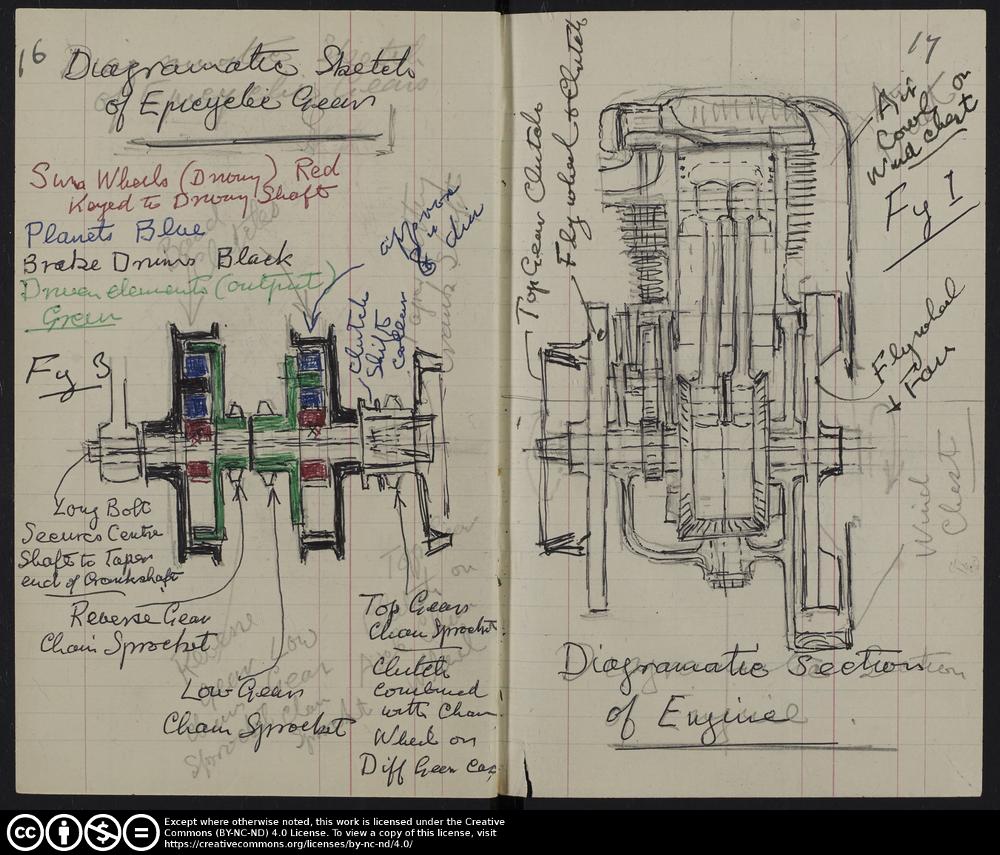 16
Diagramatic Sketch
of Epicyclic Gear
Sun Wheels (Driving) Red
Keyed to Driving Shaft
Planets Blue
Brake Drums Black
Driven elements (output)
Green
Fig 3
Clutch
Shift
Long Bolt
Secures Centre
Shaft to Taper
end of Crankshaft
Reverse Gear
Chain Sprocket
Low Gear
Chain Sprocket
Top Gear
Chain Sprocket
Clutch
Combined
with Chain
Wheel on
Diff Gear
17
Top Gear Clutch
Fly wheel & Clutch
Air
Cowl or
Wind chest
Fig 1
Flywheel
Fan
Wind
Chest
Diagramatic Section
of Engine
Except where otherwise noted, this work is licensed under the Creative
Commons (BY-NC-ND) 4.0 License. To view a copy of this license, visit
https://creativecommons.org/licenses/by-nc-nd/4.0/